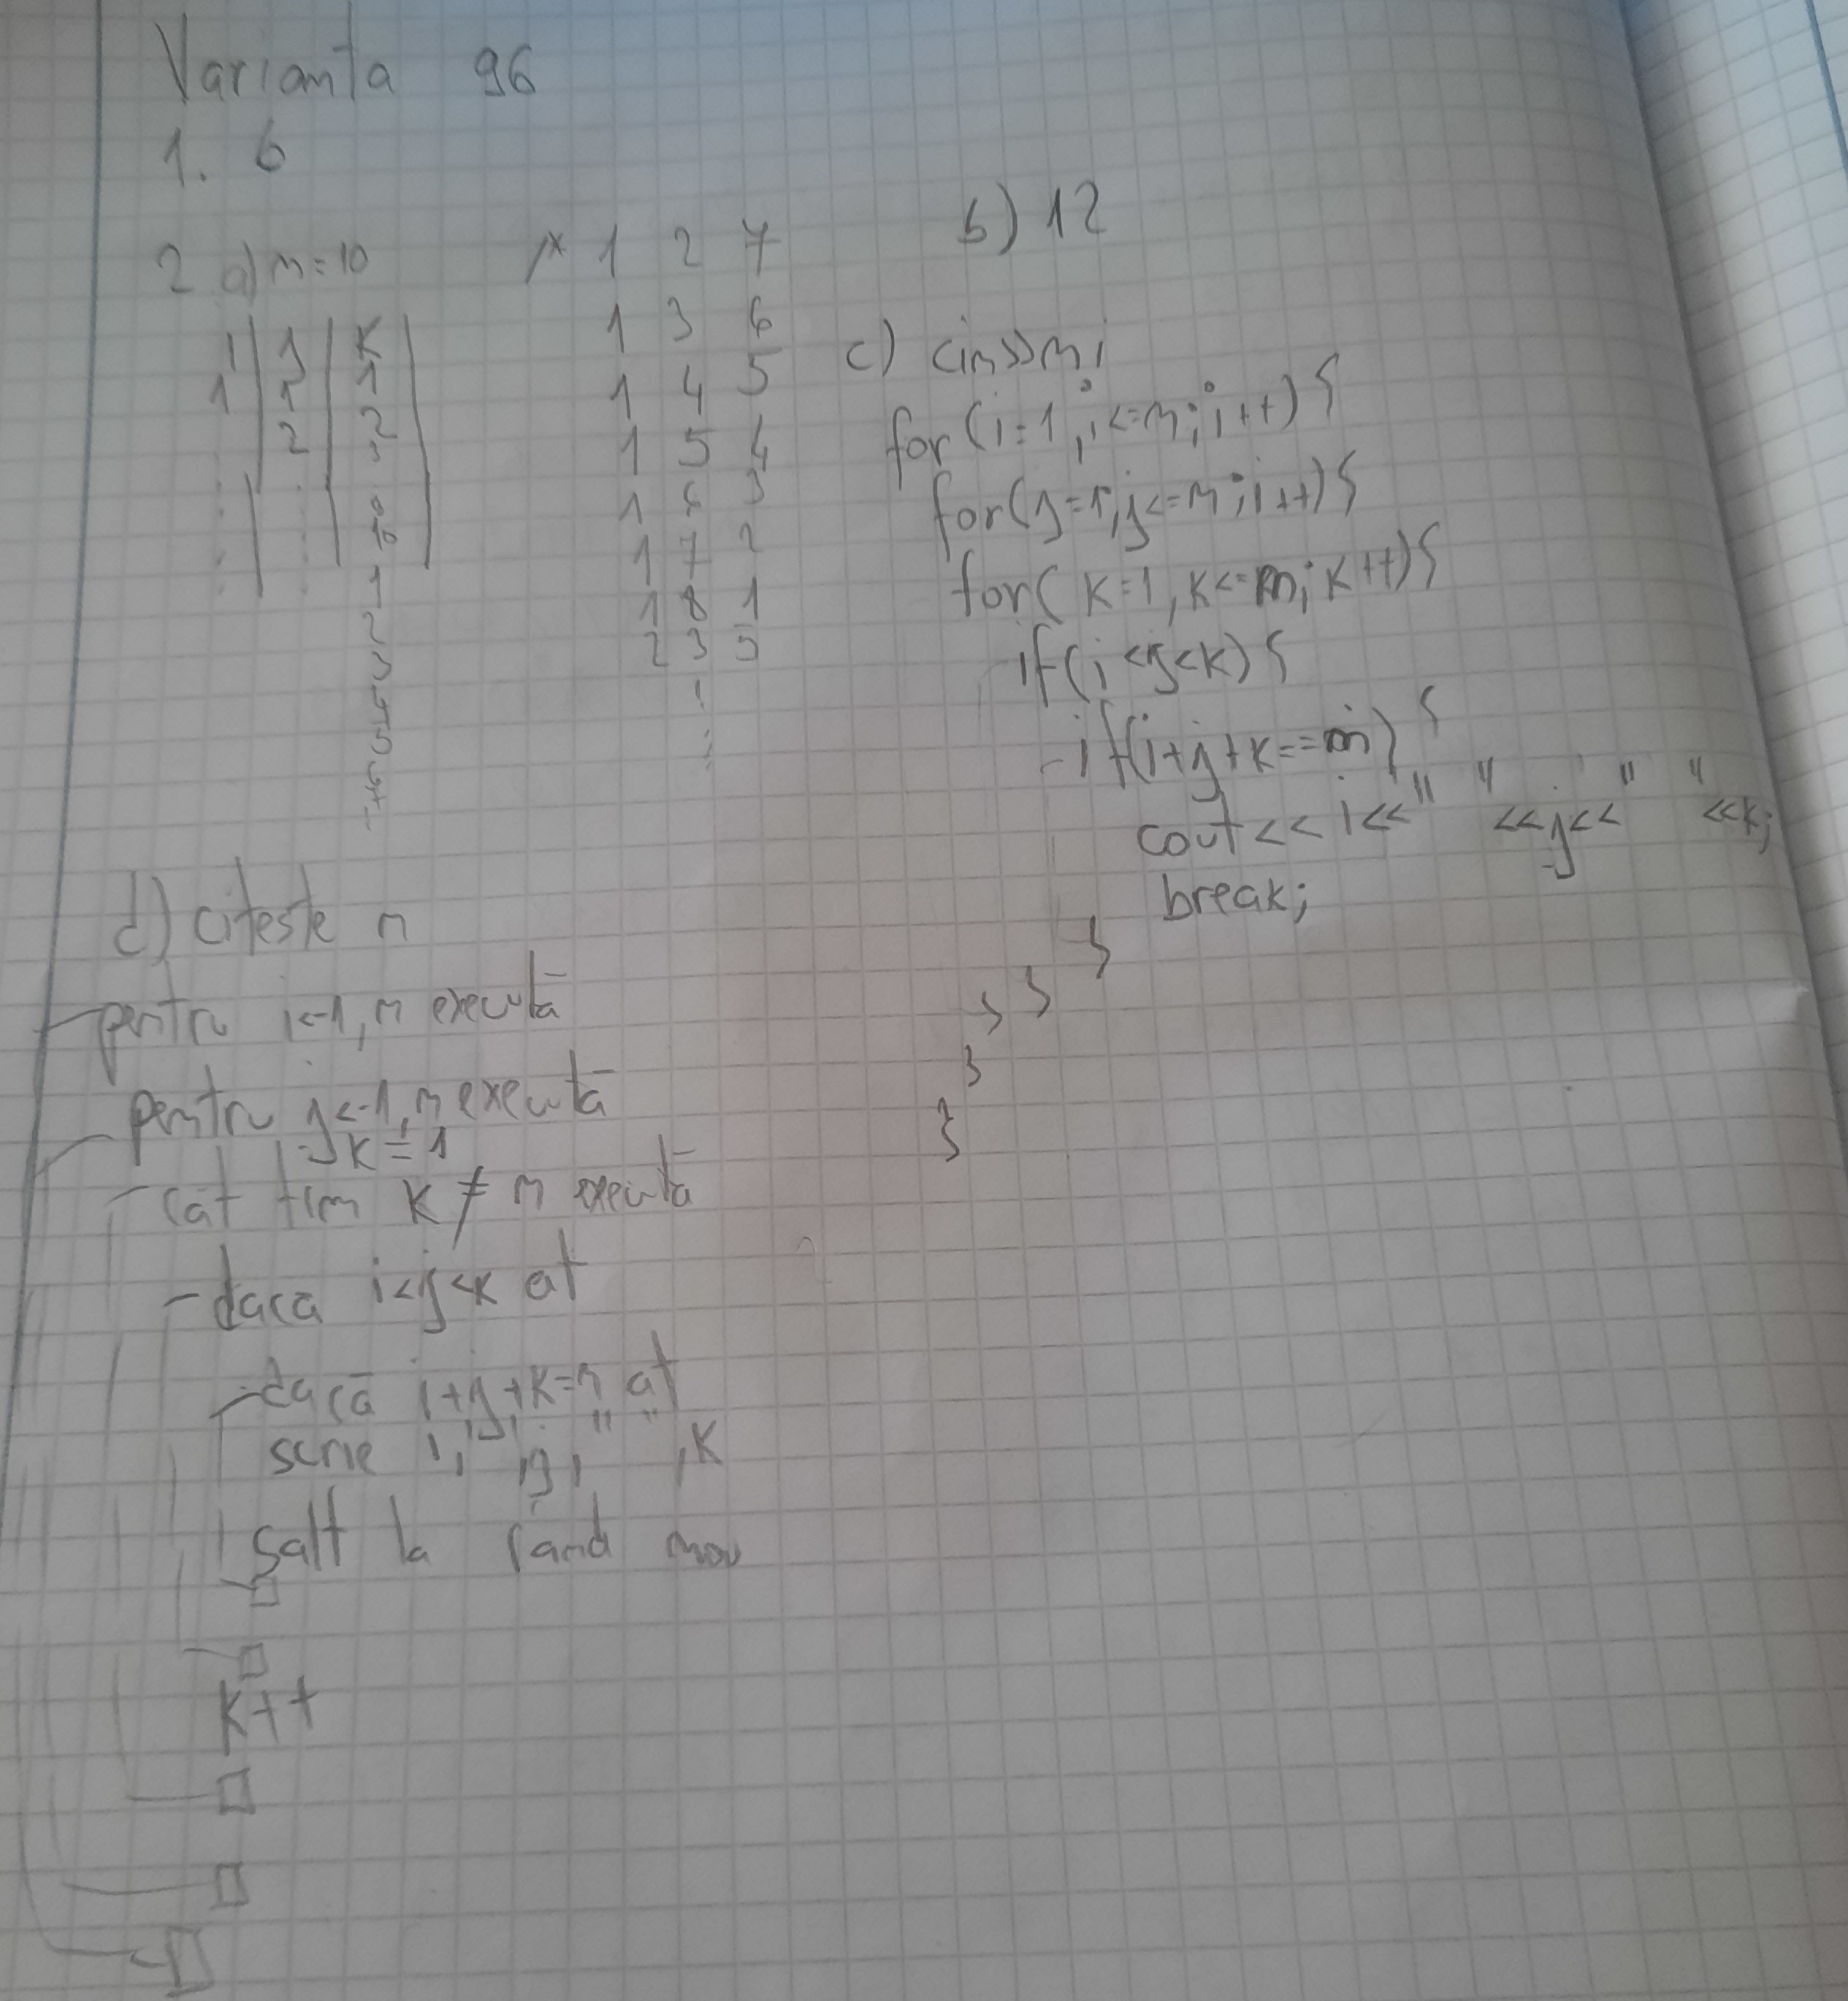 Varianta 96
1. 6
2 a) n=10
i j k
1 1 1
2 2
3
10
1
2
3
4
5
6
1 2 7
1 3 6
1 4 5
1 5 4
1 6 3
1 7 2
1 8 1
2 3 5
b) 12
c) cin>>n;
for(i=1, i<=n; i++){
for(j=1, j<=n; i++){
for(k=1, k<=n; k++){
if(i<j<k){
if(i+j+k==n){
cout<<i<<" "<<j<<" "<<k;
break;
}
}
}
}
}
d) citeste n
pentru i<-1,n execută
pentru j<-1,n execută
k=1
cât timp k≠n executa
daca i<j<k at
dacă i+j+k=n at
scrie i," ",j," ",k
salt la rand nou
□
□
k++
□
□
□